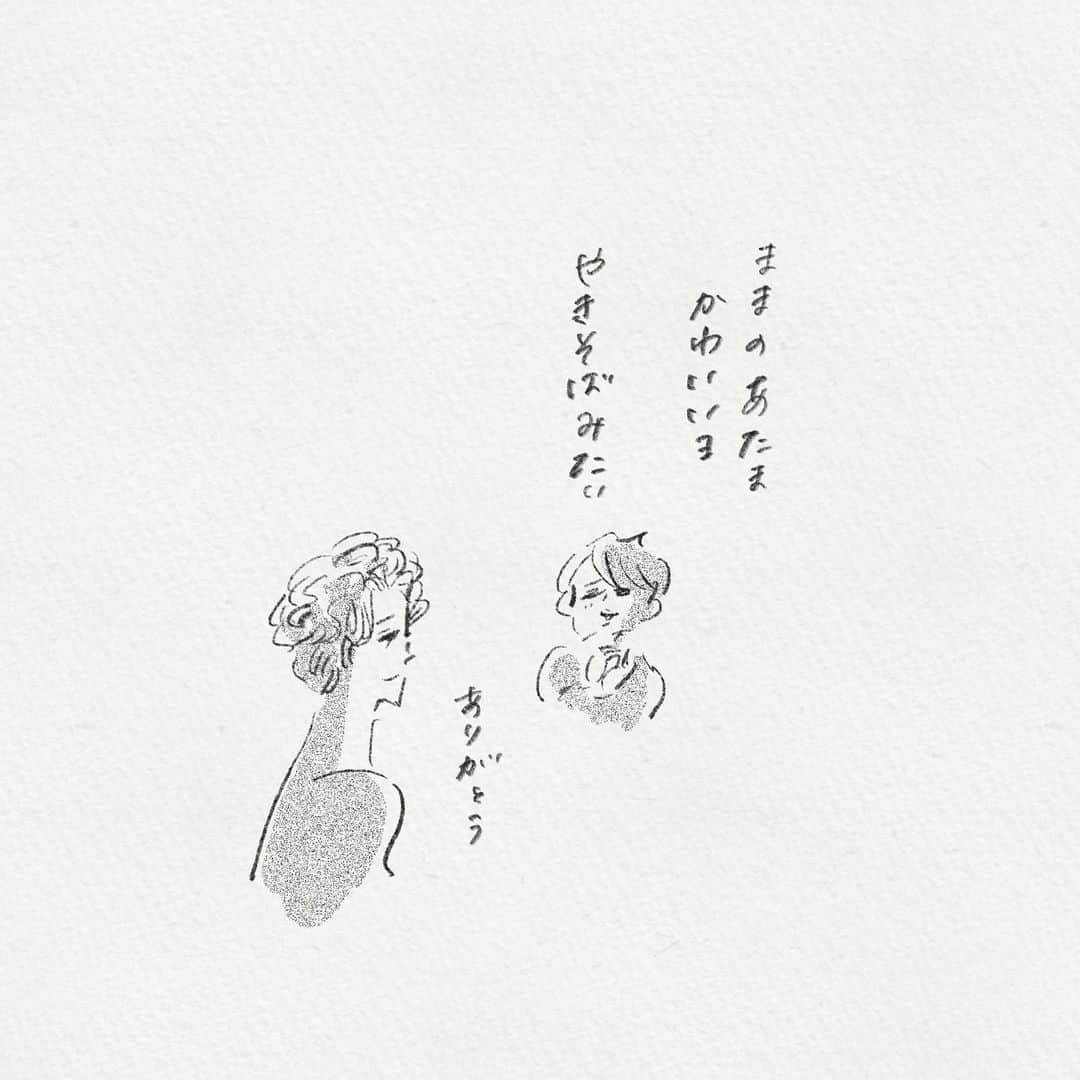 ままのあたま
かわいいよ
やきそばみたい
ありがとう